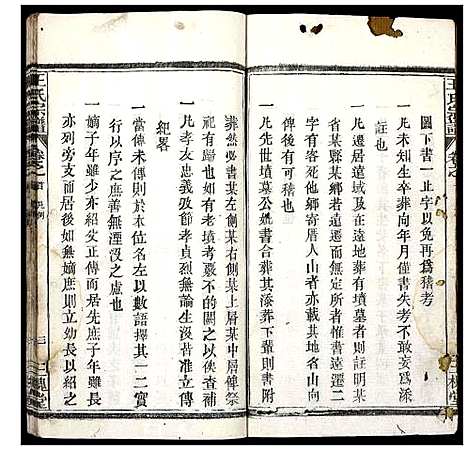 王氏宗譜
卷之
三槐堂
圖下書一止字以免再爲稽考
一凡未知生卒葬向年月僅書失考不敢妄爲
註也
一凡遷居遠域及在遠地葬有墳墓者則註明某
省某縣某鄉若遠遷而無定所者惟書遠遷二
字凡在他鄉寄厝人山者亦載其地名山向
俾後有可稽也
一凡先世墳墓公媲書合葬其添葬下輩則書附
葬然必書某左側某右側某上層某中層俾祭
祀有歸也如有老墳考覈不的闕之以俟査補
一凡孝友忠義及節孝貞烈無論生沒皆准立傳
紀畧
一當傳未傳則於本位名左以數語擇其一二實
行以序之庶善無湮沒之虞也
一嫡子年雖少亦紹父正傳而居先庶子年雖長
亦列旁支而居後如無嫡庶則立幼長以紹之
王氏宗譜
卷之首
凡例
三
三槐堂